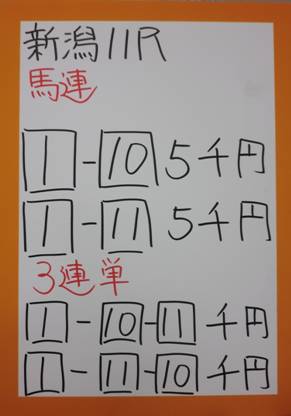 新潟11R
馬連
1-10 5千円
1-11 5千円
3連単
1-10-11 千円
1-11-10 千円